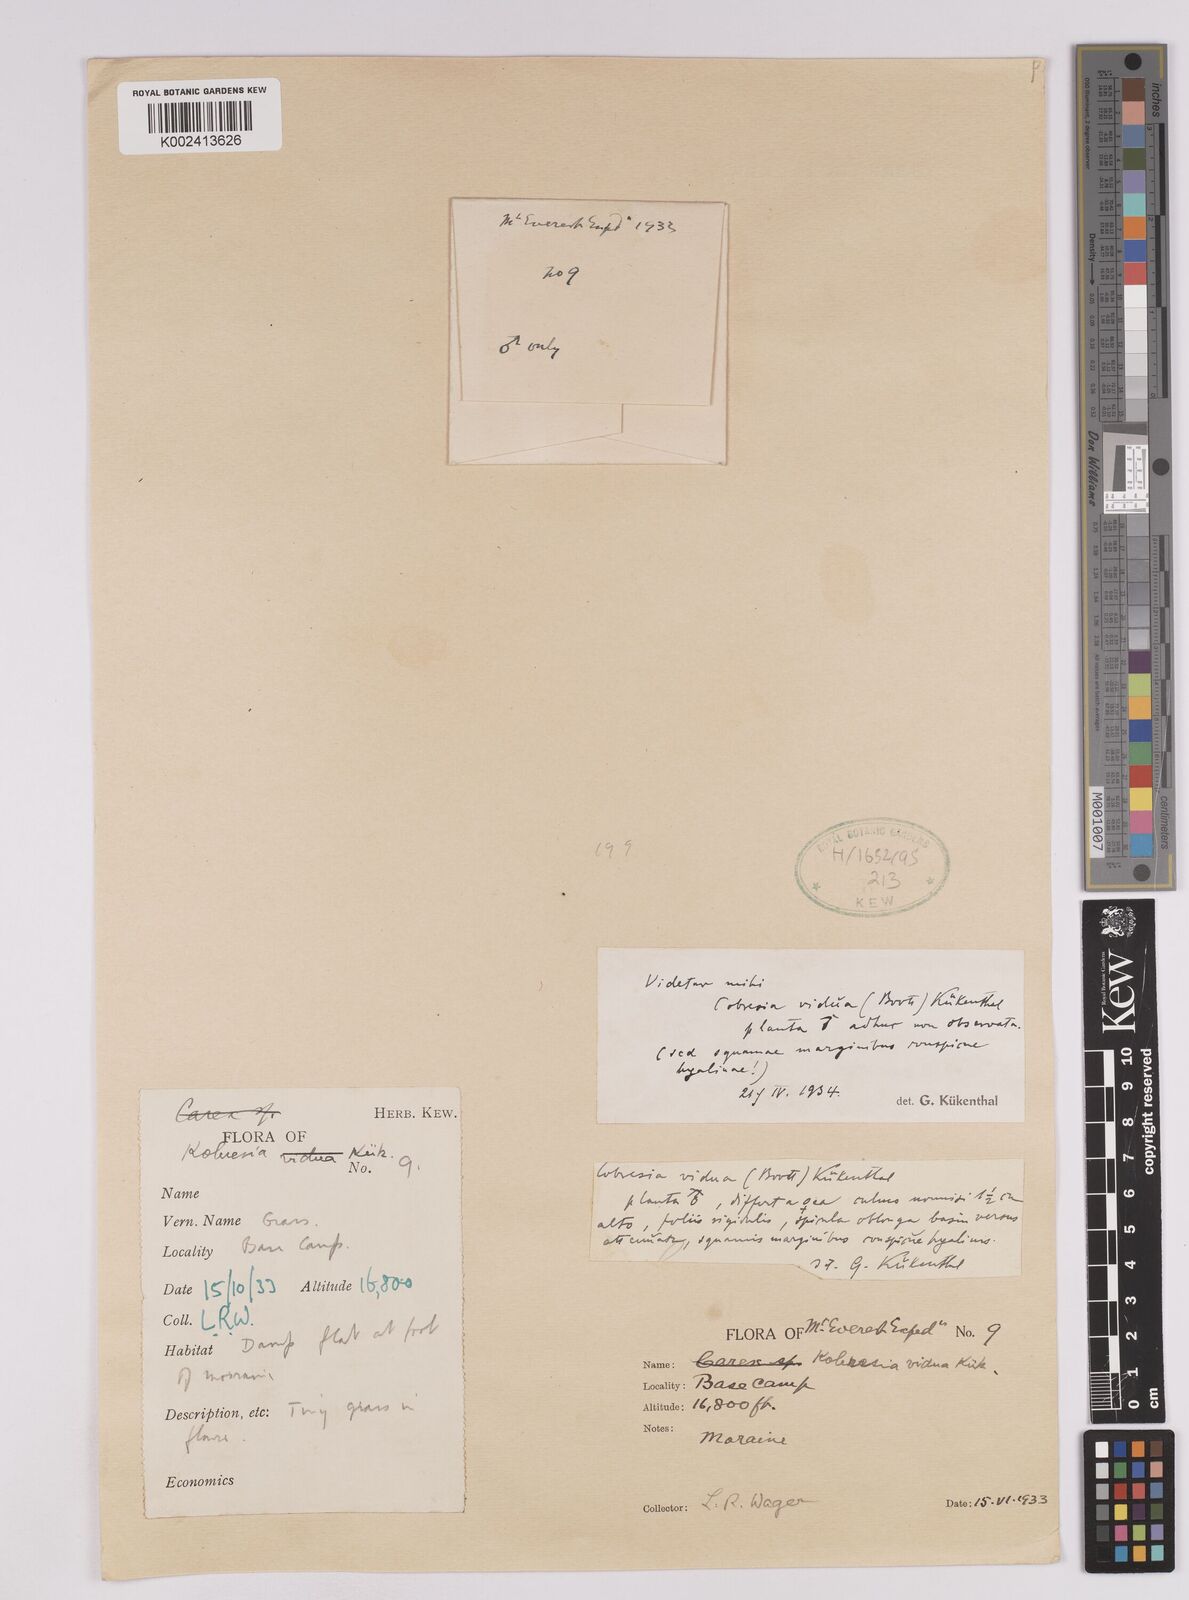 ROYAL BOTANIC GARDENS KEW
K002413626
Mt Everest Expdn 1933
no 9
♂ only
199
ROYAL BOTANIC GARDENS
H/1652/95
213
KEW
Videtur mihi
Cobresia vidua (Boott) Kükenthal
planta ♂ adhuc non observata.
(sed squamae marginibus conspicue
hyalinae!)
IV. 1934.
det. G. Kükenthal
Cobresia vidua (Boott) Kükenthal
planta ♂, differt a ♀ea culmo nonnisi 1½ cm
alto, foliis rigidulis, spicula oblonga basin versus
attenuata, squamis marginibus conspicue hyalinis.
G. Kükenthal
Carex sp.
HERB. KEW.
FLORA OF
Kobresia vidua Kük.
No. 9.
Name
Vern. Name Grass.
Locality Base Camp.
Date 15/10/33 Altitude 16,800
Coll. L.R.W.
Habitat Damp flat at foot
of moraine
Description, etc: Tiny grass in
flower.
Economics
FLORA OF Mt Everest Expdn No. 9
Name: Carex sp. Kobresia vidua Kük.
Locality: Base Camp
Altitude: 16,800 ft.
Notes:
Moraine
Collector: L. R. Wager
Date: 15.VI.1933
inches
Density
Don Williams
M001007
centimeters
Royal Botanic Gardens
Kew
0 1 2 3 4 5 6 7 8 9 10
cm
copyright reserved